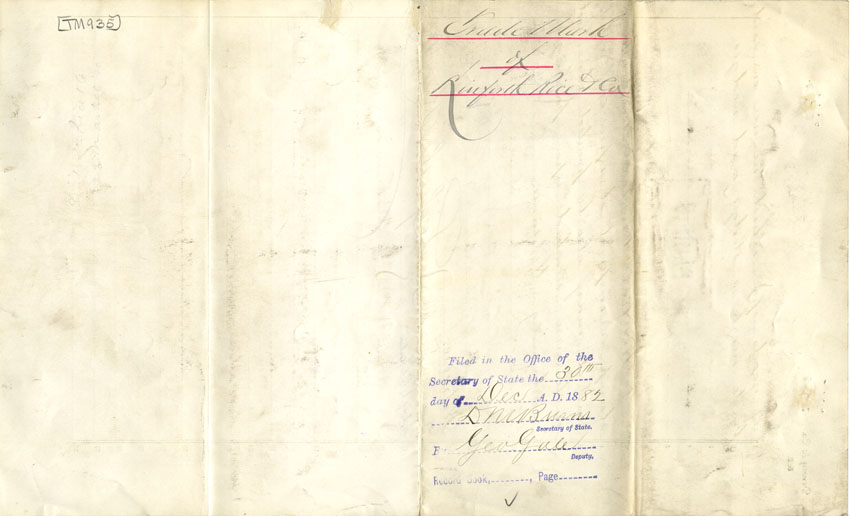 [TM935]
Trade Mark
of
Rinforth Rice & Co
Filed in the Office of the
Secretary of State the 30th
day of Dec. A. D. 1882
D M Burns
Secretary of State.
Geo Gale
Deputy,
Record Book, , Page